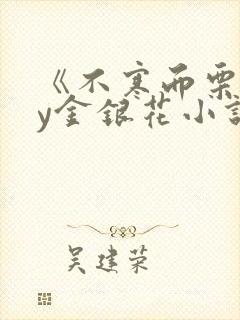 《不寒而栗
y金银花小说
吴建荣